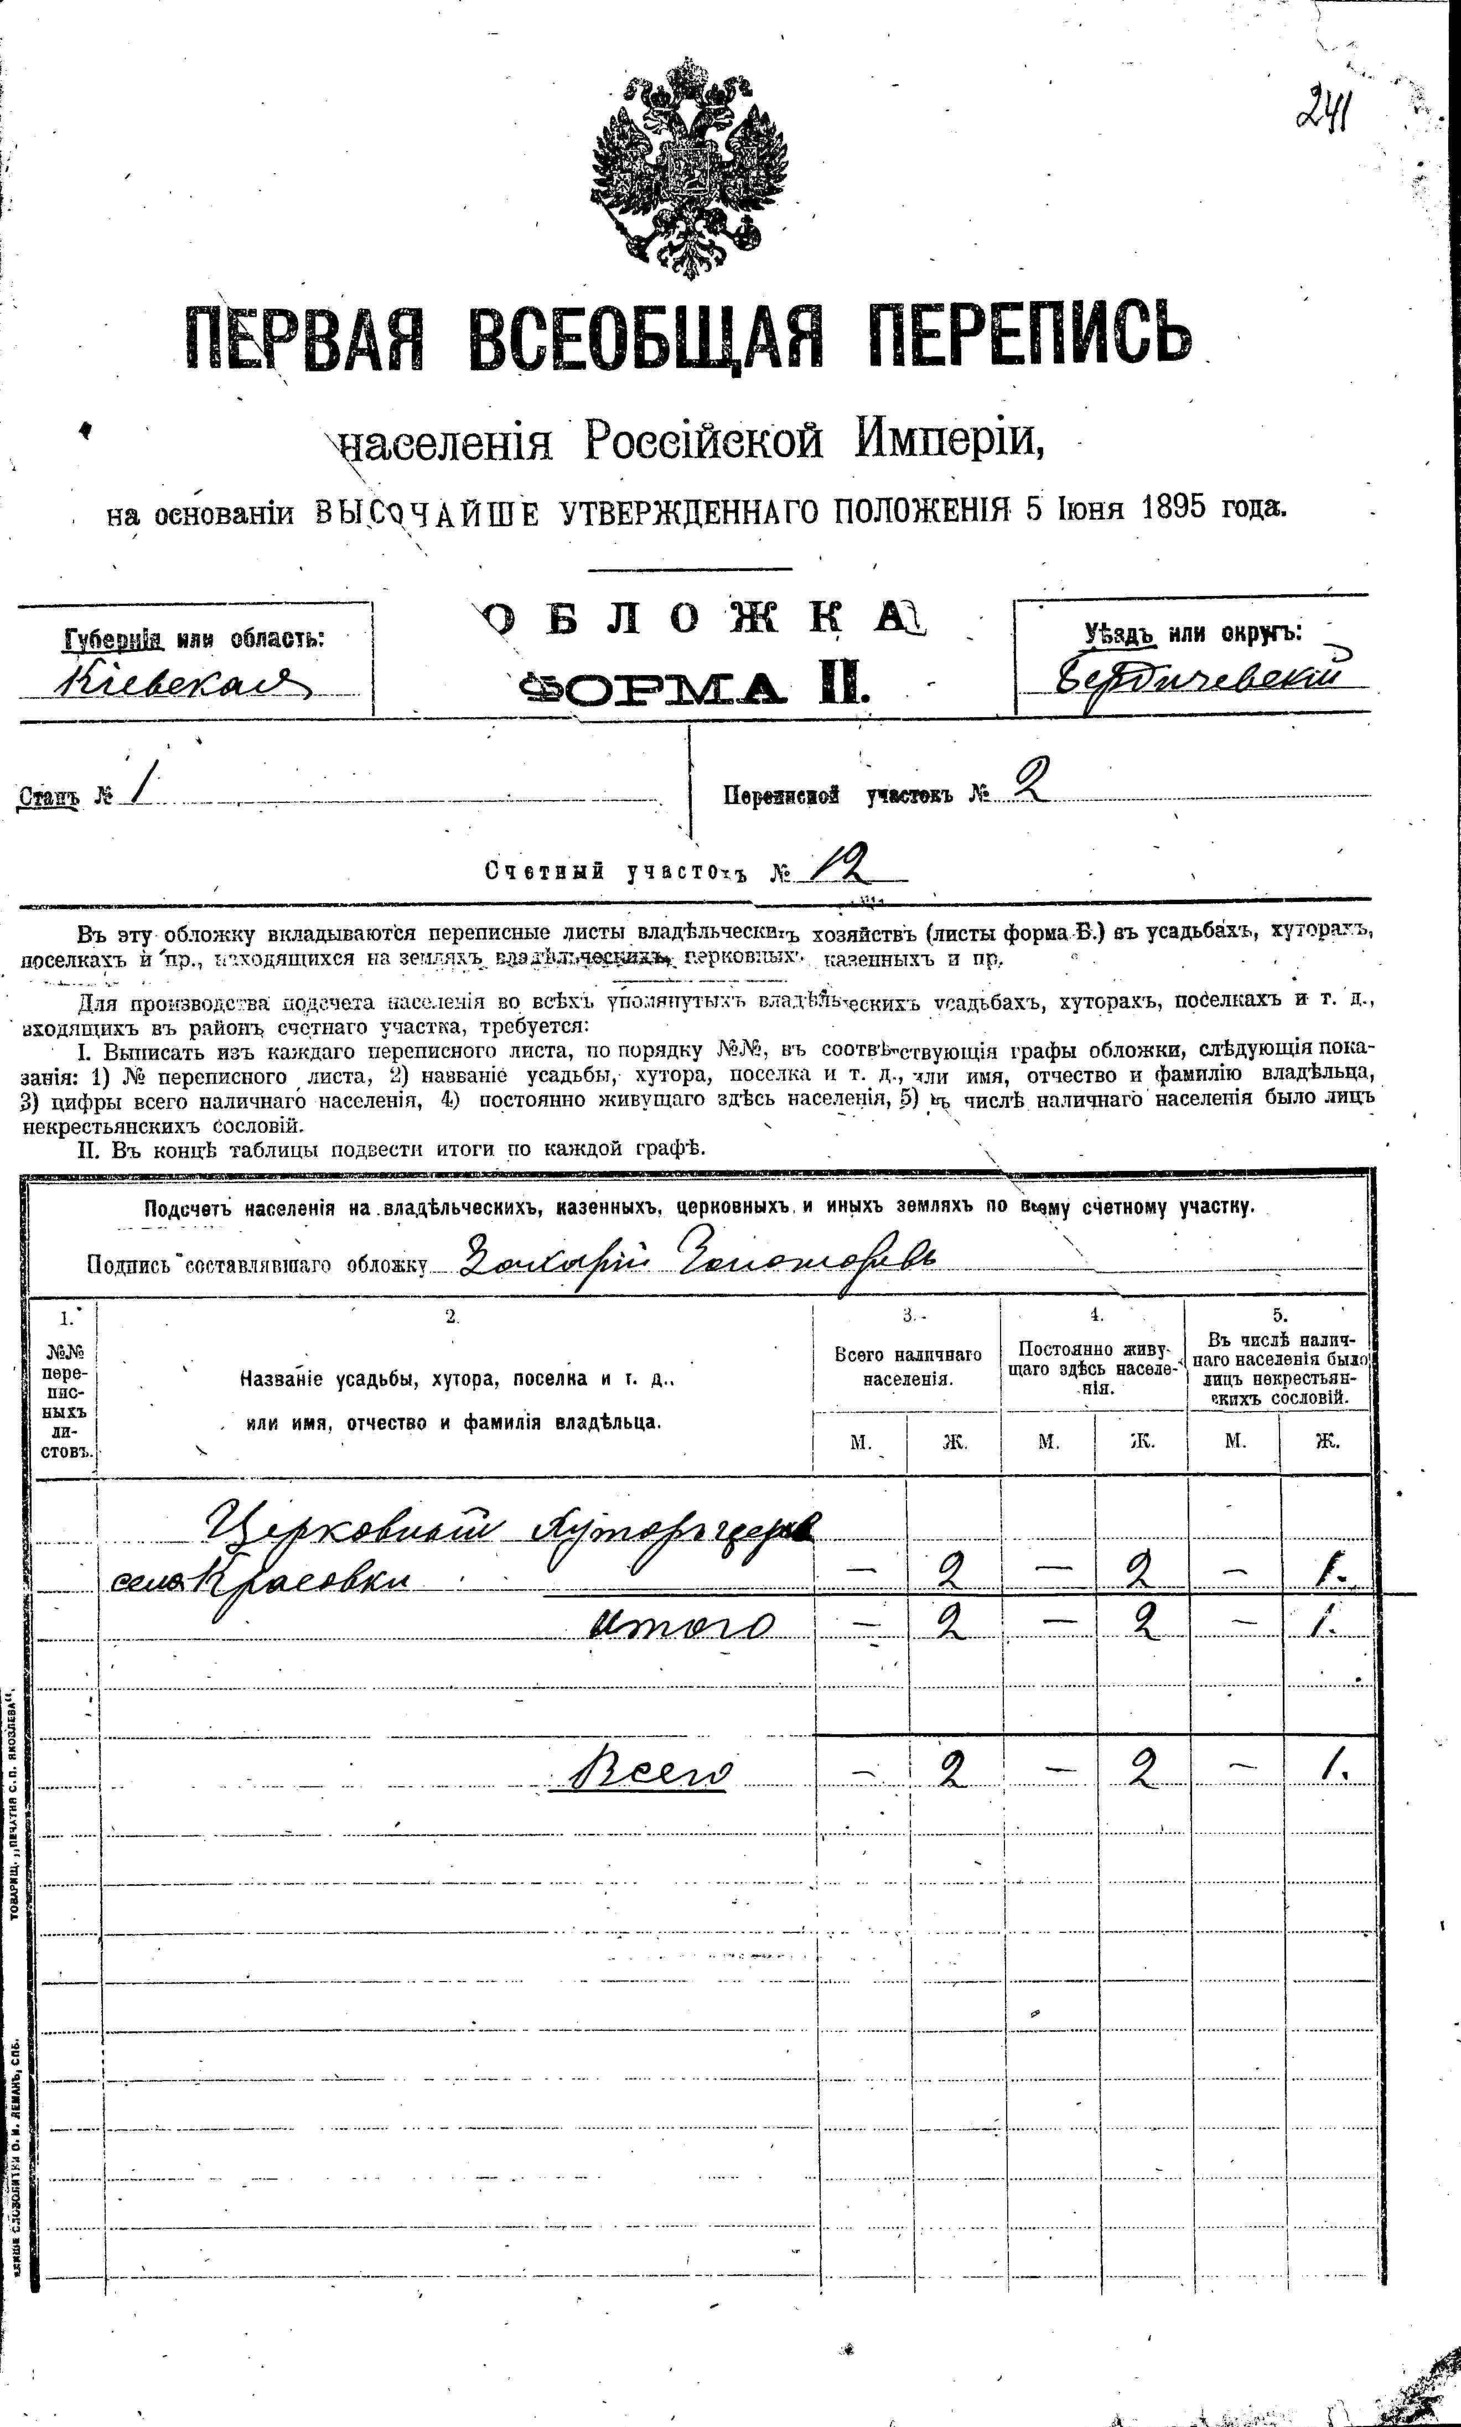 241
ПЕРВАЯ ВСЕОБЩАЯ ПЕРЕПИСЬ
населенія Россійской Имперіи,
на основаніи ВЫСОЧАЙШЕ УТВЕРЖДЕННАГО ПОЛОЖЕНІЯ 5 Іюня 1895 года.
ОБЛОЖКА
ФОРМА II.
Губернія или область:
Кіевская
Уѣздъ или округъ:
Бердичевскій
Станъ № 1
Переписной участокъ № 2
Счетный участокъ № 12
Въ эту обложку вкладываются переписные листы владѣльческихъ хозяйствъ (листы форма Б.) въ усадьбахъ, хуторахъ,
поселкахъ и пр., находящихся на земляхъ владѣльческихъ, церковныхъ, казенныхъ и пр.
Для производства подсчета населенія во всѣхъ упомянутыхъ владѣльческихъ усадьбахъ, хуторахъ, поселкахъ и т. д.,
входящихъ въ районъ счетнаго участка, требуется:
I. Выписать изъ каждаго переписного листа, по порядку №№, въ соотвѣтствующія графы обложки, слѣдующія пока-
занія: 1) № переписного листа, 2) названіе усадьбы, хутора, поселка и т. д., или имя, отчество и фамилію владѣльца,
3) цифры всего наличнаго населенія, 4) постоянно живущаго здѣсь населенія, 5) въ числѣ наличнаго населенія было лицъ
некрестьянскихъ сословій.
II. Въ концѣ таблицы подвести итоги по каждой графѣ.
Подсчетъ населенія на владѣльческихъ, казенныхъ, церковныхъ и иныхъ земляхъ по всему счетному участку.
Подпись составлявшаго обложку Захарій
1. 2. 3. 4. 5.
№№ пере-
пис-
ныхъ
ли-
стовъ.
Названіе усадьбы, хутора, поселка и т. д.,
или имя, отчество и фамилія владѣльца.
Всего наличнаго
населенія.
Постоянно живу-
щаго здѣсь населе-
нія.
Въ числѣ налич-
наго населенія было
лицъ некрестьян-
скихъ сословій.
М. Ж. М. Ж. М. Ж.
Церковный Хуторъ
села Красовки — 2 — 2 — 1.
итого — 2 — 2 — 1.
Всего — 2 — 2 — 1.
ТОВАРИЩ. „ПЕЧАТНЯ С. П. ЯКОВЛЕВА“.
СЛОВОЛИТНИ О. И. ЛЕМАНЪ, СПБ.